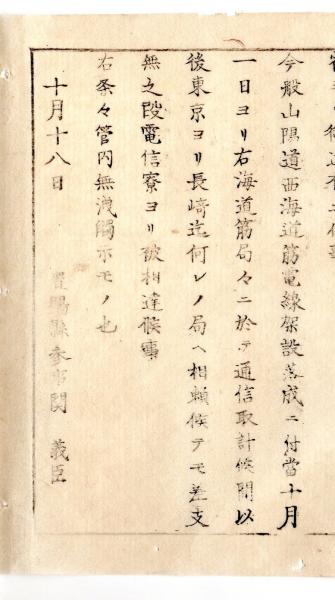 今般山陽道西海道筋電線架設落成ニ付當十月
一日ヨリ右海道筋局々ニ於テ通信取計候間以
後東京ヨリ長崎迄何レノ局ヘ相頼候テモ差支
無之段電信寮ヨリ被相達候事
右条々管内無洩觸示モノ也
十月十八日
置賜縣参事関 義臣